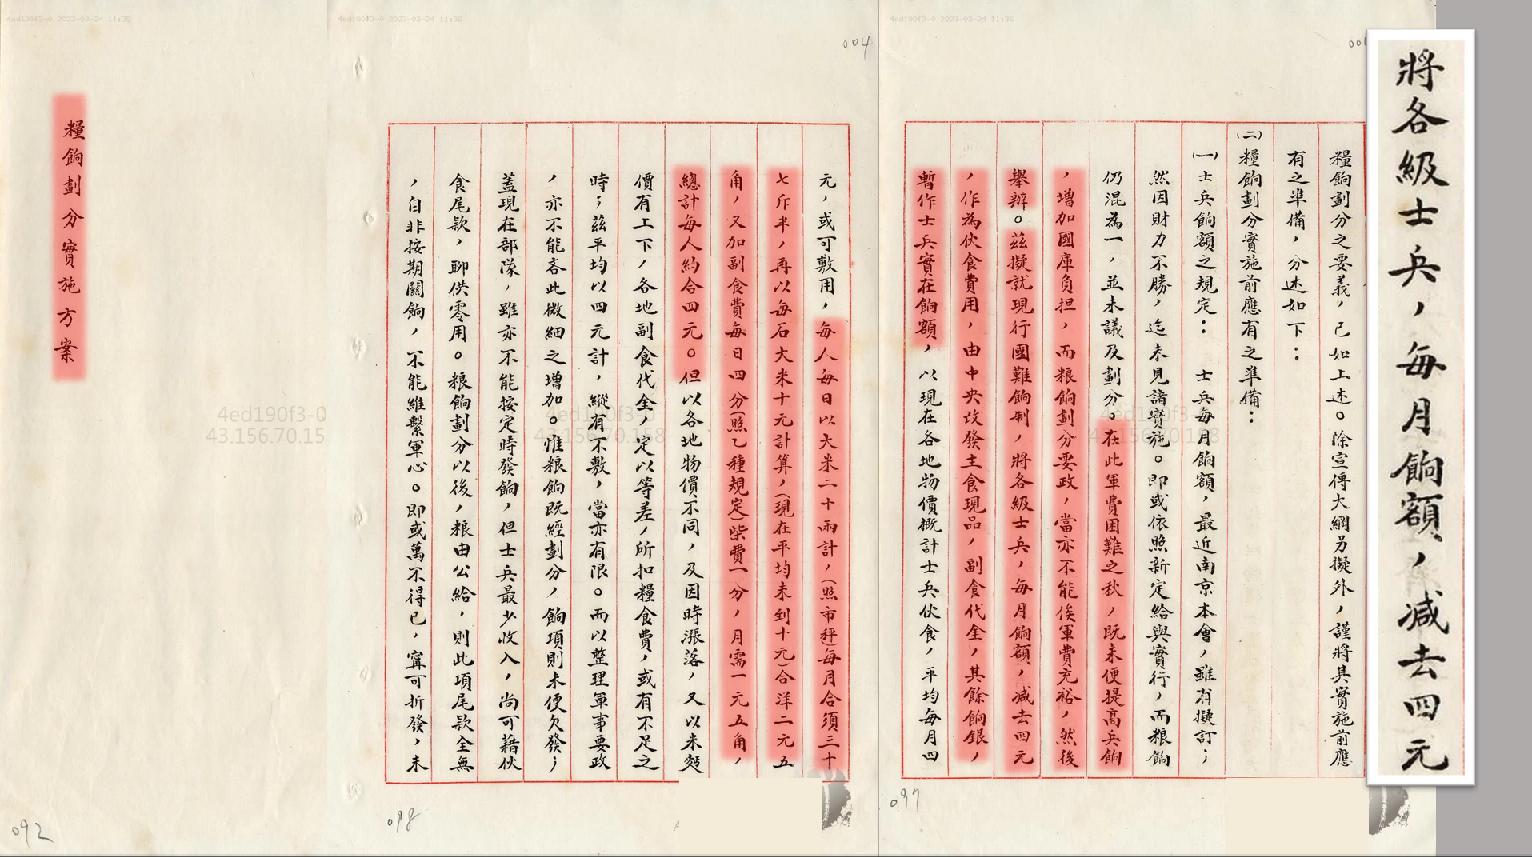 將各級士兵，每月餉額，減去四元
006
糧餉劃分之要義，已如上述。除宣傳大綱另擬外，謹將其實施前應
有之準備，分述如下：
(二)糧餉劃分實施前應有之準備：
(一)士兵餉額之規定：　士兵每月餉額，最近南京本會，雖有擬訂；
然因財力不勝，迄未見諸實施。即或依照新定給與實行，而粮餉
仍混為一，並未議及劃分。在此軍費困難之秋，既未便提高兵餉
，增加國庫負担，而粮餉劃分要政，當亦不能俟軍費充裕，然後
舉辦。茲擬就現行國難餉制，將各級士兵，每月餉額，減去四元
，作為伙食費用，由中央改發主食現品，副食代金，其餘餉銀，
暫作士兵實在餉額，以現在各地物價概計士兵伙食，平均每月四
097
004
元，或可敷用，每人每日以大米二十兩計，(照市秤)每月合須三十
七斤半，再以每石大米十元計算，(現在平均未到十元)合洋二元五
角，又加副食費每日四分(照乙種規定)柴費一分，月需一元五角，
總計每人約合四元。但以各地物價不同，及因時漲落，又以米類
價有上下，各地副食代金，定以等差，所扣糧食費，或有不足之
時；茲平均以四元計，縱有不敷，當亦有限。而以整理軍事要政
，亦不能吝此微細之增加。惟粮餉既經劃分，餉項則未便欠發；
蓋現在部隊，雖亦不能按定時發餉，但士兵最少收入，尚可藉伙
食尾欵，聊供零用。粮餉劃分以後，粮由公給，則此項尾欵全無
，自非按期關餉，不能維繫軍心。即或萬不得已，寧可折發，未
098
糧餉劃分實施方案
092